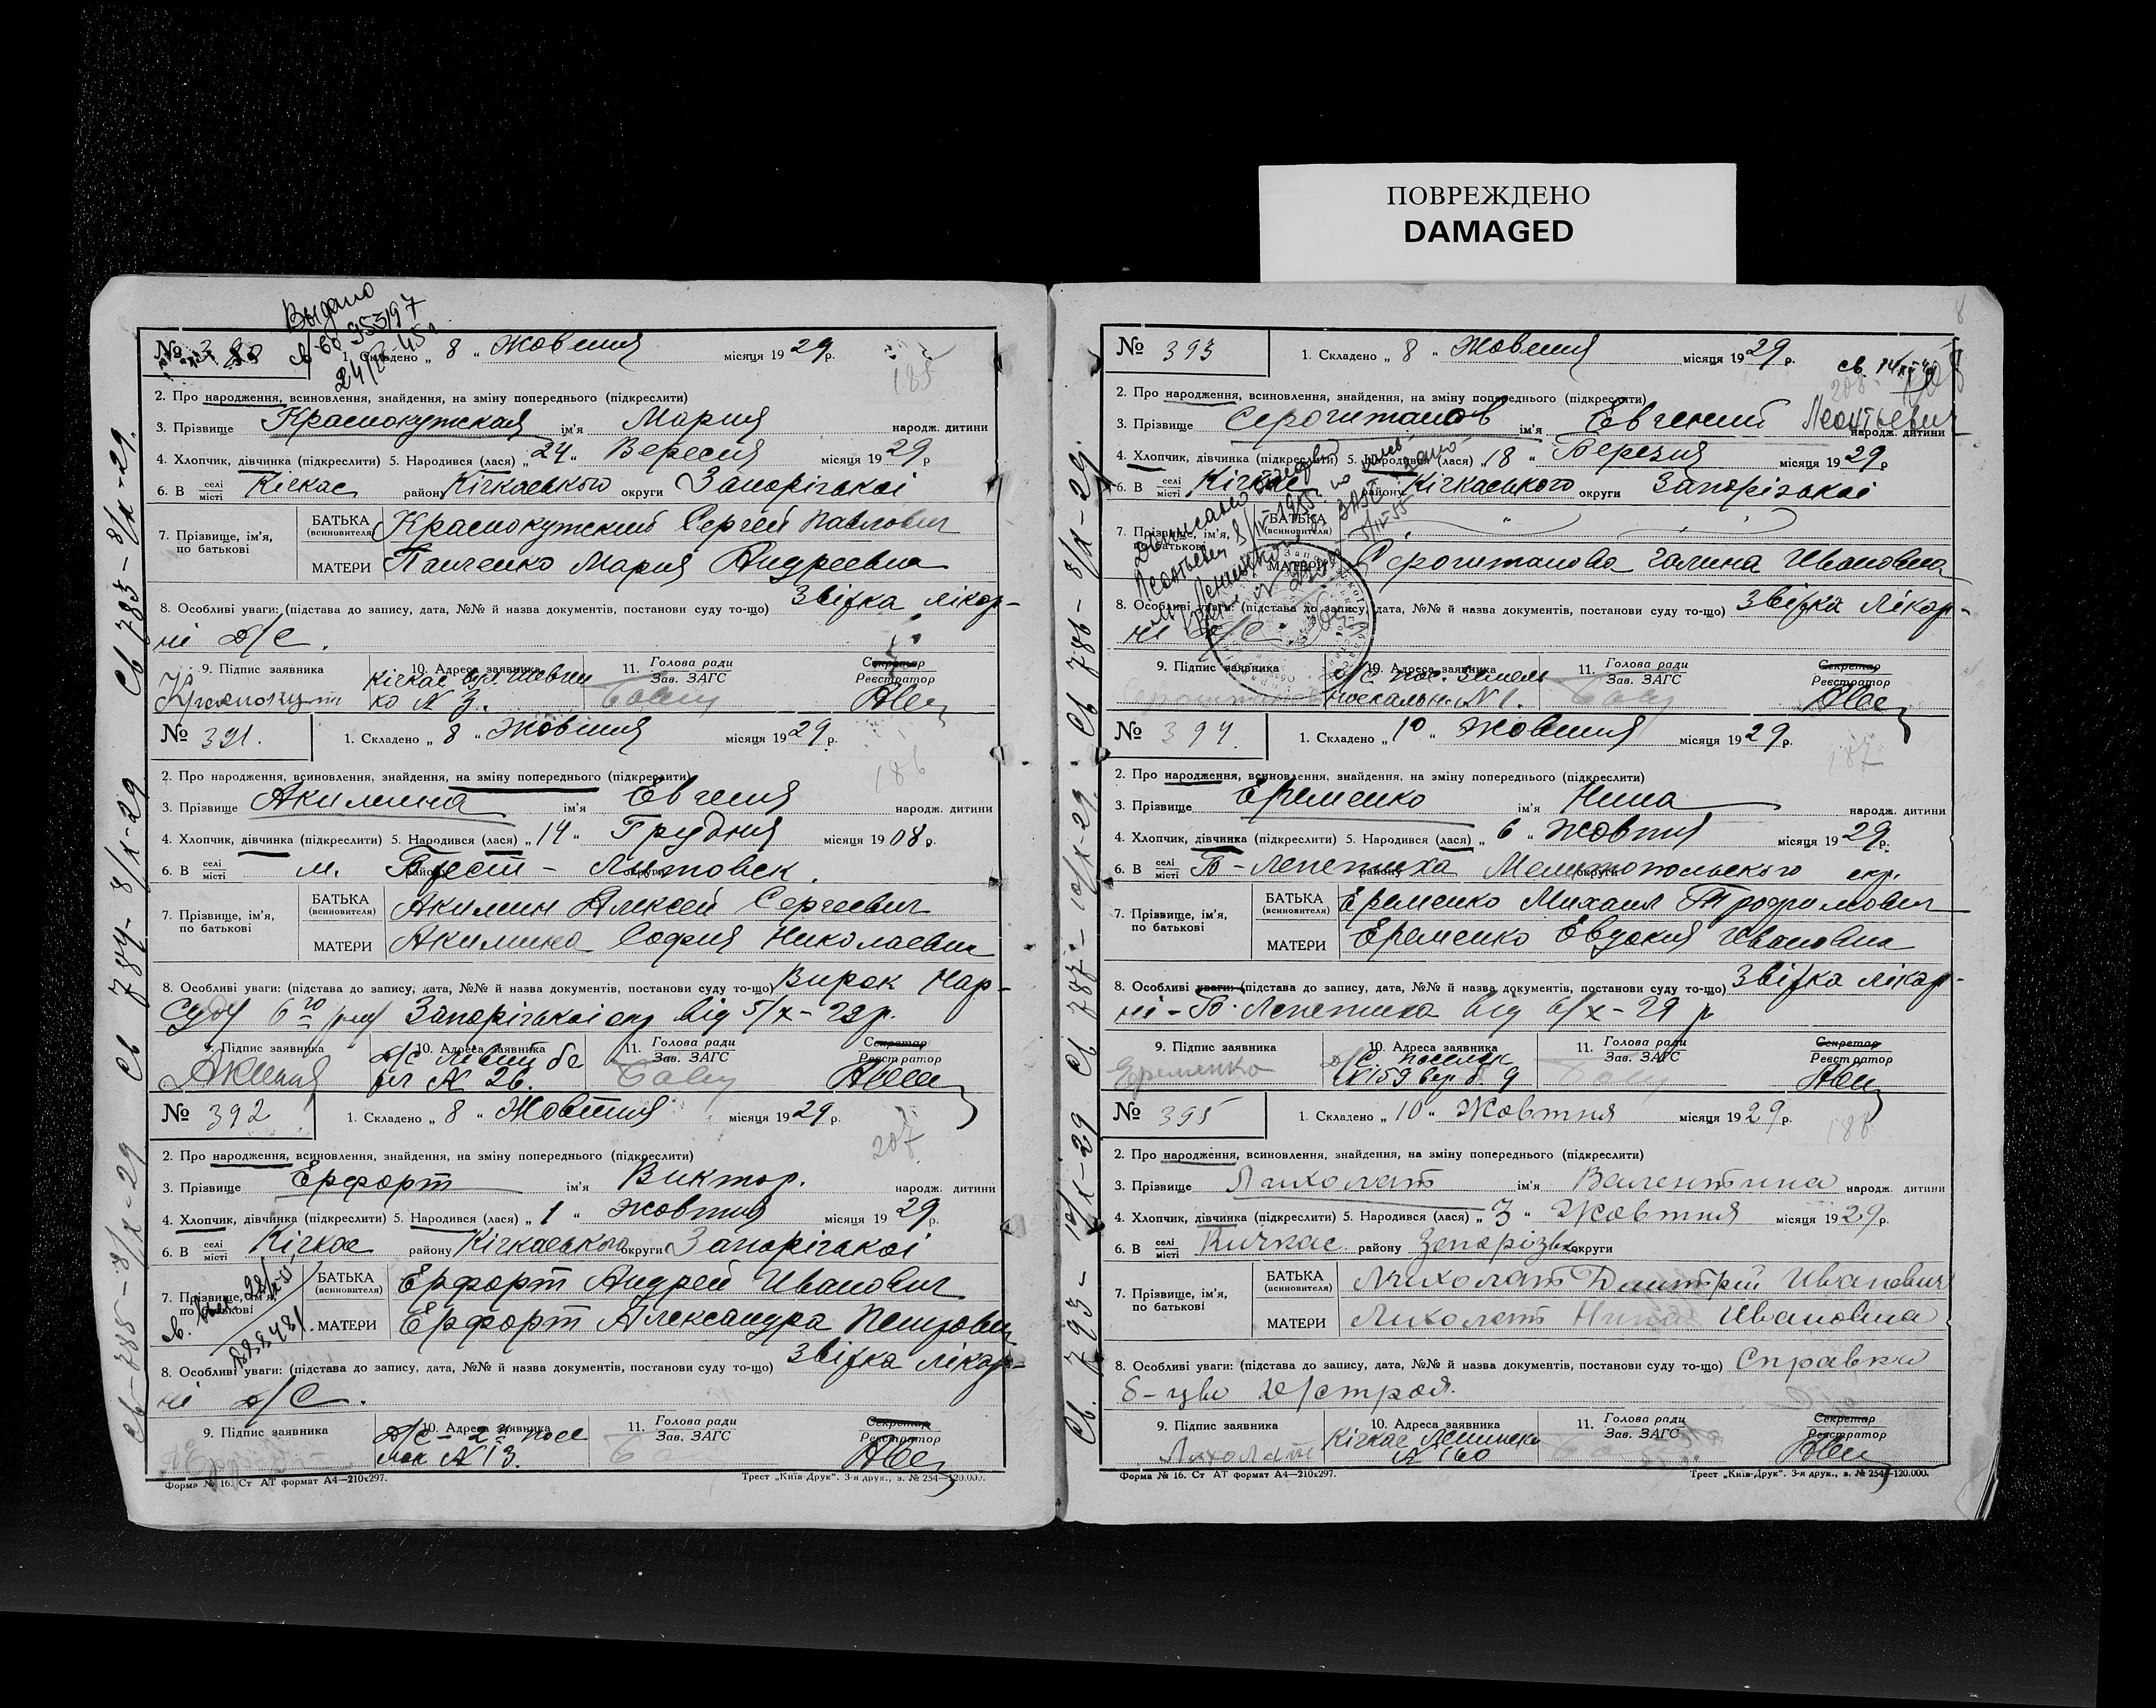 ПОВРЕЖДЕНО
DAMAGED
Выдано
24/
№ 390
1. Складено „ 8 “ Жовтня місяця 1929р.
185
2. Про народження, всиновлення, знайдення, на зміну попереднього (підкреслити)
3. Прізвище Краснокутская ім'я Мария народж. дитини
4. Хлопчик, дівчинка (підкреслити) 5. Народився (лася) „ 24 “ Вересня місяця 1929 р
6. В селі місті Кічкас району Кічкаського округи Запорізької
7. Прізвище, ім'я, по батькові
БАТЬКА (всиновителя) Краснокутский Сергей Павлович
МАТЕРИ Панченко Мария Андреевна
8. Особливі уваги: (підстава до запису, дата, №№ й назва документів, постанови суду то-що) Звістка лікар-
ні Д/С.
9. Підпис заявника Краснокут
10. Адреса заявника Кічкас вул. Шевчен
ко № 3.
11. Голова ради Зав. ЗАГС
Секретар Реєстратор
№ 391.
1. Складено „ 8 “ Жовтня місяця 1929р.
186
2. Про народження, всиновлення, знайдення, на зміну попереднього (підкреслити)
3. Прізвище Акимина ім'я Евгения народж. дитини
4. Хлопчик, дівчинка (підкреслити) 5. Народився (лася) „ 14 “ Грудня місяця 1908 р.
6. В селі місті м. району Брест - округи Литовск.
7. Прізвище, ім'я, по батькові
БАТЬКА (всиновителя) Акимин Алексей Сергеевич
МАТЕРИ Акимина София Николаевна
8. Особливі уваги: (підстава до запису, дата, №№ й назва документів, постанови суду то-що) Вирок Нар-
суду 6го Запорізької окр від 5/X-29 р.
9. Підпис заявника
10. Адреса заявника Д/С Лівий бе
рег № 26.
11. Голова ради Зав. ЗАГС
Секретар Реєстратор
№ 392
1. Складено „ 8 “ Жовтня місяця 1929р.
207
2. Про народження, всиновлення, знайдення, на зміну попереднього (підкреслити)
3. Прізвище Ерфорт ім'я Виктор. народж. дитини
4. Хлопчик, дівчинка (підкреслити) 5. Народився (лася) „ 1 “ Жовтня місяця 1929р.
6. В селі місті Кічкас району Кічкаського округи Запорізької
7. Прізвище, ім'я, по батькові
БАТЬКА (всиновителя) Ерфорт Андрей Иванович
МАТЕРИ Ерфорт Александра Петровна
8. Особливі уваги: (підстава до запису, дата, №№ й назва документів, постанови суду то-що) Звістка лікар-
ні Д/С.
9. Підпис заявника
10. Адреса заявника Д/С - 2й посе
лок № 13.
11. Голова ради Зав. ЗАГС
Секретар Реєстратор
Форма № 16. Ст АТ формат А4—210х297.
Трест „Київ-Друк“. 3-я друк., з. № 254—120.000.
Св 783 - 8/X-29.
Св 784 - 8/X-29
Св - 785 - 8/X-29
8
№ 393
1. Складено „ 8 “ Жовтня місяця 1929 р.
208
2. Про народження, всиновлення, знайдення, на зміну попереднього (підкреслити)
3. Прізвище Сероштанов ім'я Евгений Леонтьевич народж. дитини
4. Хлопчик, дівчинка (підкреслити) 5. Народився (лася) „ 18 “ Березня місяця 1929 р
6. В селі місті Кічкас району Кічкаського округи Запорізької
7. Прізвище, ім'я, по батькові
БАТЬКА (всиновителя)
МАТЕРИ Сероштанова Галина Ивановна
8. Особливі уваги: (підстава до запису, дата, №№ й назва документів, постанови суду то-що) Звістка Лікар-
ні Д/С.
9. Підпис заявника
10. Адреса заявника
№ 1.
11. Голова ради Зав. ЗАГС
Секретар Реєстратор
№ 394.
1. Складено „ 10 “ Жовтня місяця 1929р.
187
2. Про народження, всиновлення, знайдення, на зміну попереднього (підкреслити)
3. Прізвище Еременко ім'я Нина народж. дитини
4. Хлопчик, дівчинка (підкреслити) 5. Народився (лася) „ 6 “ Жовтня місяця 1929р.
6. В селі місті Б-Лепетиха району Мелитопольского округи окр.
7. Прізвище, ім'я, по батькові
БАТЬКА (всиновителя) Еременко Михаил Трофимович
МАТЕРИ Еременко Евдокия Ивановна
8. Особливі уваги: (підстава до запису, дата, №№ й назва документів, постанови суду то-що) Звістка лікар-
ні - Б. Лепетиха від 6/X-29 р
9. Підпис заявника Еременко
10. Адреса заявника Д/С, поселок
№ 159
11. Голова ради Зав. ЗАГС
Секретар Реєстратор
№ 395
1. Складено „ 10 “ Жовтня місяця 1929р.
188
2. Про народження, всиновлення, знайдення, на зміну попереднього (підкреслити)
3. Прізвище Лихолат ім'я Валентина народж. дитини
4. Хлопчик, дівчинка (підкреслити) 5. Народився (лася) „ 3 “ Жовтня місяця 1929р.
6. В селі місті Кичкас району Запорізьк округи
7. Прізвище, ім'я, по батькові
БАТЬКА (всиновителя) Лихолат Дмитрий Иванович
МАТЕРИ Лихолат Нина Ивановна
8. Особливі уваги: (підстава до запису, дата, №№ й назва документів, постанови суду то-що) Справка
Б-цы Д/строя.
9. Підпис заявника Лихолат
10. Адреса заявника Кічкас Ленинска
№ 160
11. Голова ради Зав. ЗАГС
Секретар Реєстратор
Форма № 16. Ст АТ формат А4—210х297.
Трест „Київ-Друк“. 3-я друк., з. № 254—120.000.
Св 786 - 8/X-29.
Св 787 - 10/X-29
Св. 793 - 10/X-29